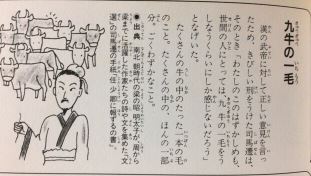 九牛の一毛
きゅうぎゅう いちもう
漢の武帝に対して正しい意見を言っ
たため、きびしい刑をうけた司馬遷は、
そのとき、「わたしのこのはずかしめも、
世間の人にとっては、九牛の一毛をう
しなうくらいにしか感じないだろう」
となげいた。
たくさんの牛の中のたった一本の毛
のこと。たくさんの中の、ほんの一部
分。ごくわずかなこと。
●出典 南北朝時代の梁の昭明太子が、周から
梁まで活躍した作家たちの詩や文を集めた、『文
選』の司馬遷の手紙、「任少卿に報ずるの書」。